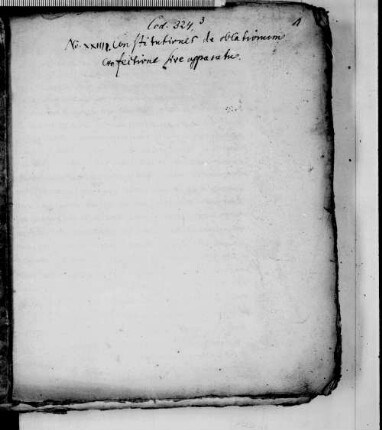 Cod. 324,3 1
No. XXIIII. Constitutiones de oblationum
confectione sive apparatu.